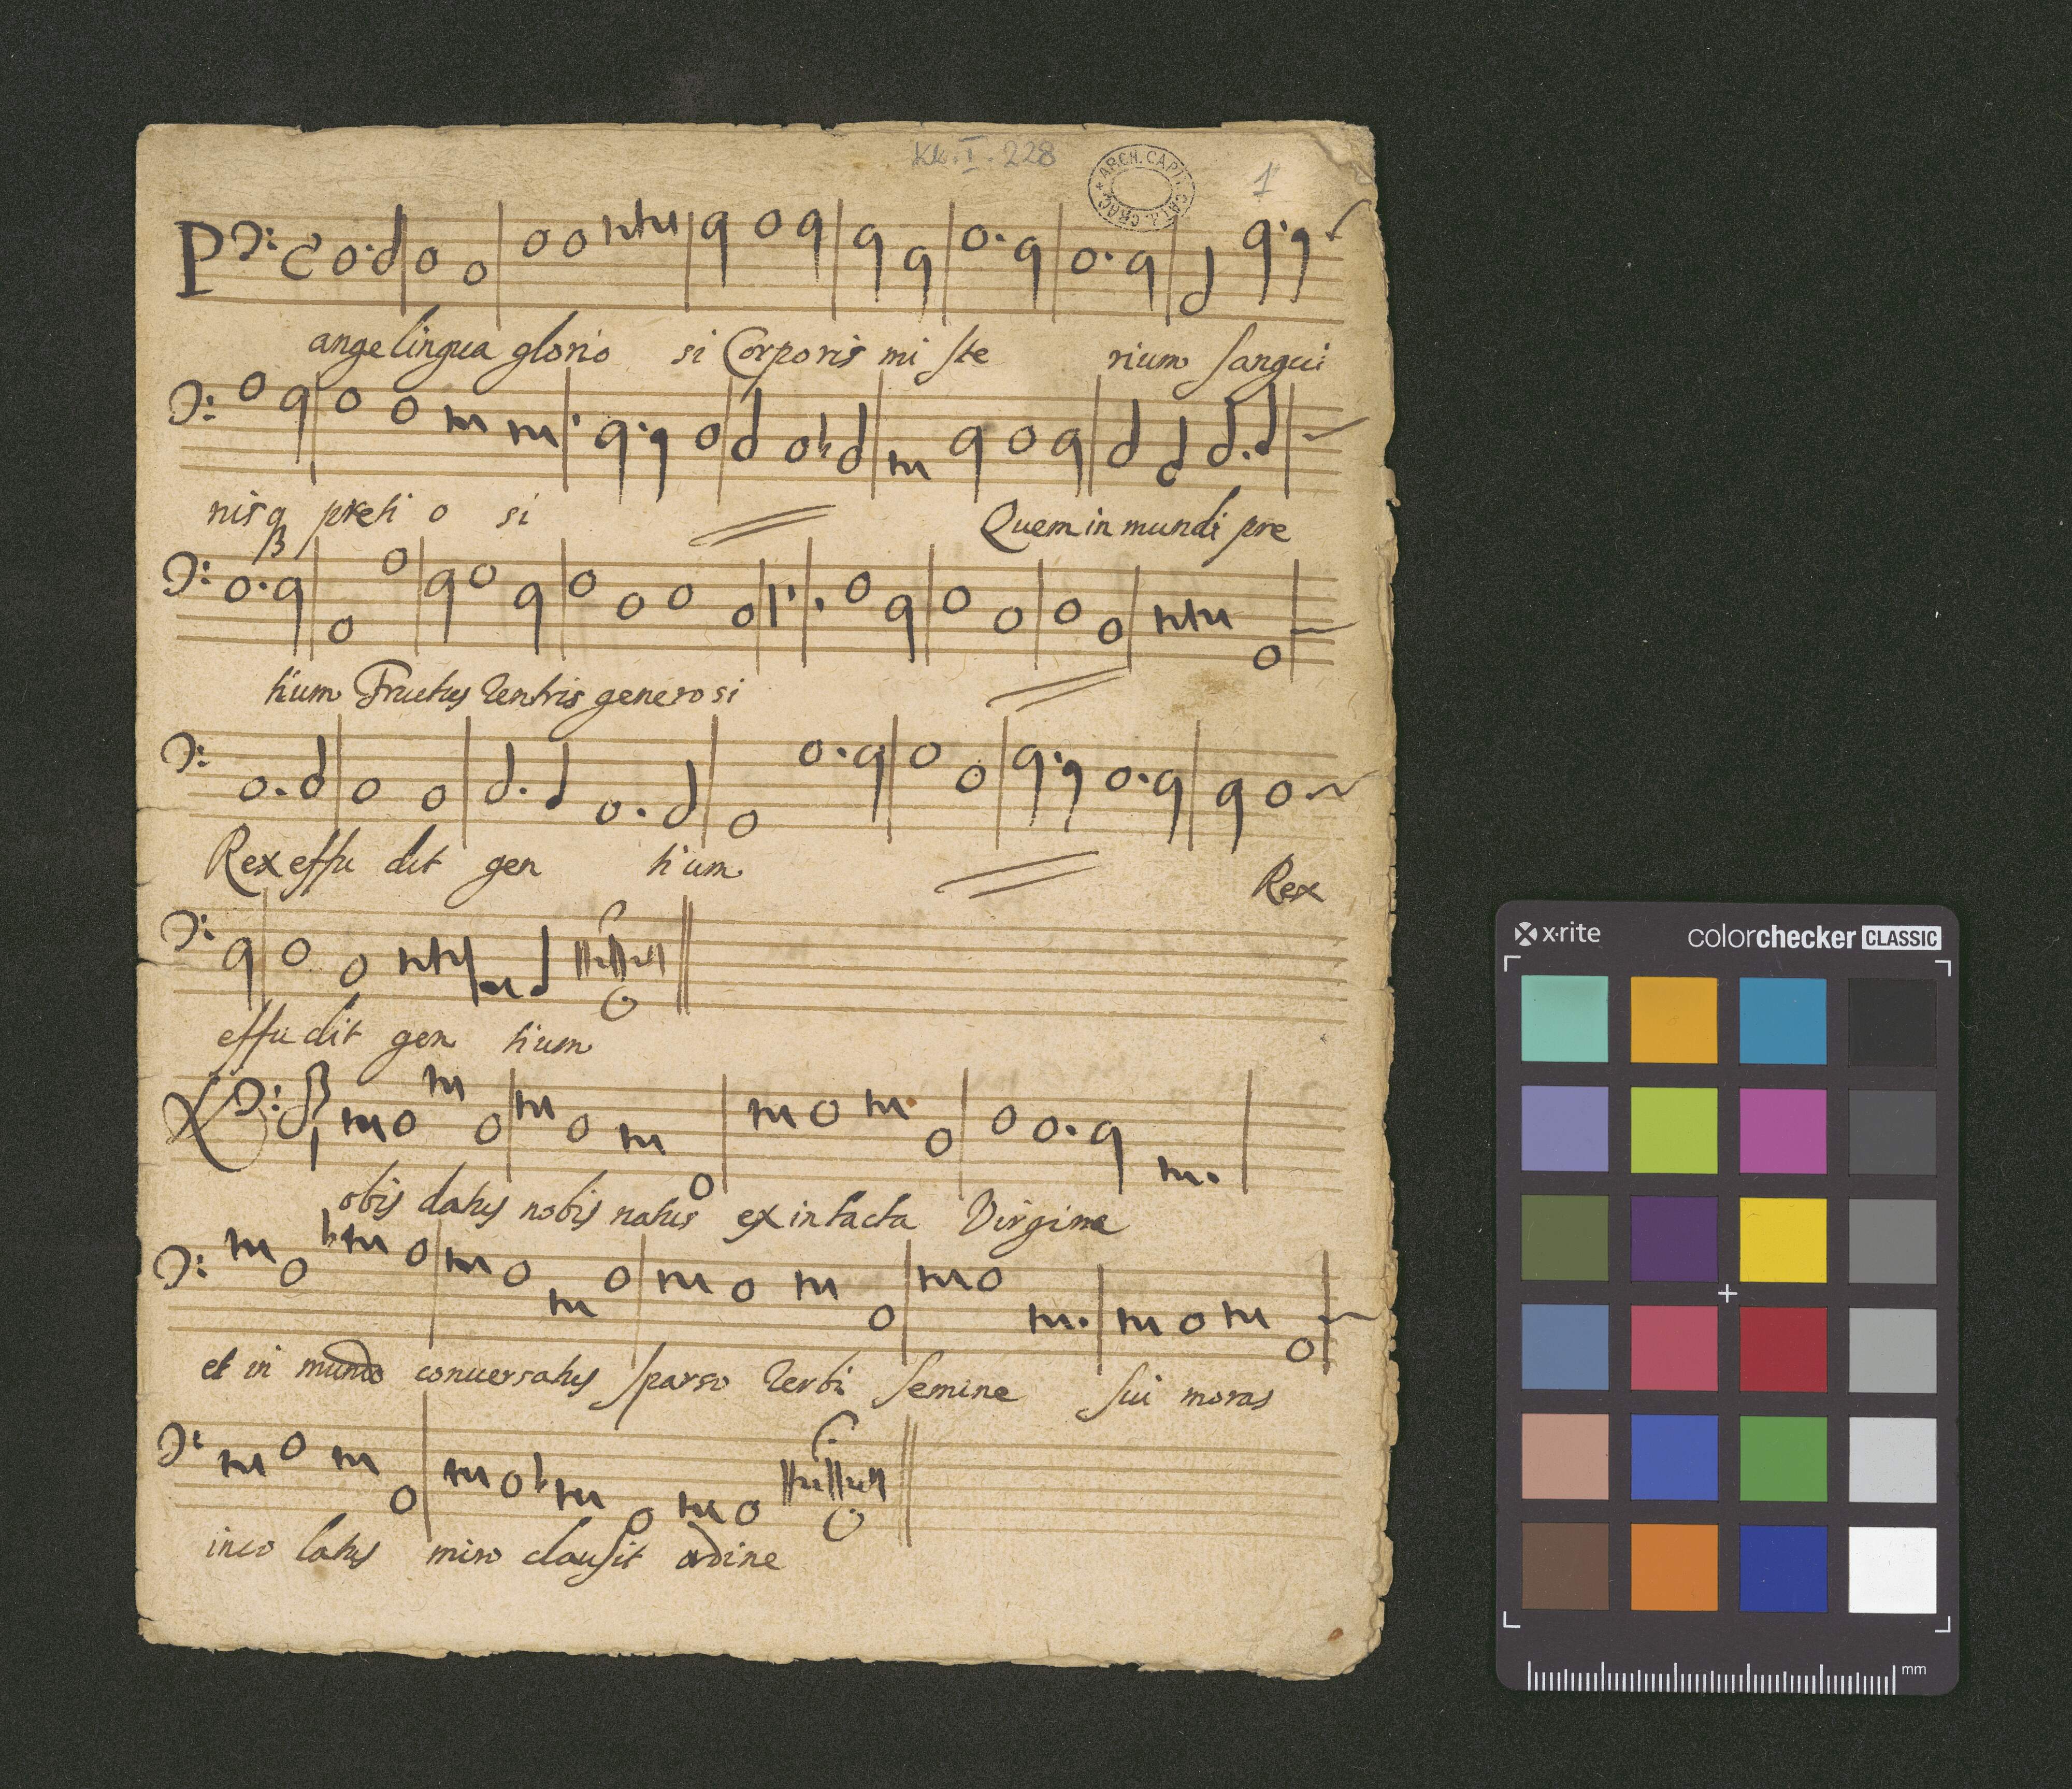 Kk. I. 228
ARCH. CAPIT. CATH. CRAC.
1
P
ange lingua glorio si Corporis mi ste rium sangui
nisq preti o si Quem in mundi pre
tium Fructus Ventris generosi
Rex effu dit gen tium Rex
effu dit gen tium
obis datus nobis natus ex intacta Virgine
et in mundo conuersatus sparso Verbi semine sui moras
inco latus miro clausit ordine
x·rite colorchecker CLASSIC
mm